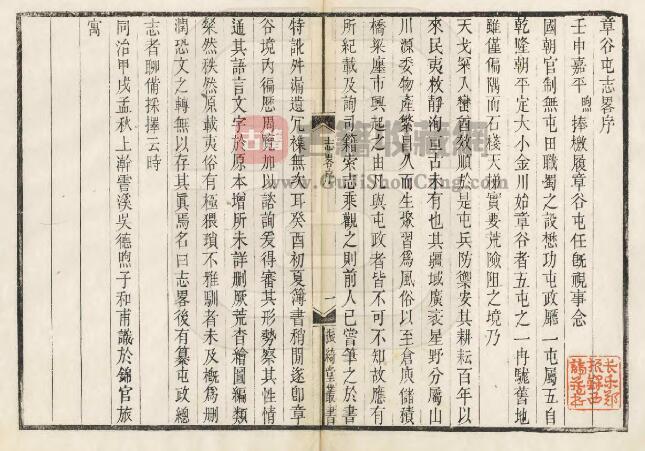 章谷屯志畧序
壬申嘉平煦捧檄履章谷屯任旣視事念
國朝官制無屯田職蜀之設懋功屯政廳一屯屬五自
乾隆朝平定大小金川始章谷者五屯之一冉駹舊地
雖僅偏隅而石棧天梯實要荒險阻之境乃
天戈深入蠻酋效順於是屯兵防禦安其耕耘百年以
來民夷敉靜洵亘古未有也其疆域廣袤星野分屬山
川源委物產繁滋人而生聚習爲風俗以至倉庾儲積
橋梁塵市興起之由凡與屯政者皆不可不知故應有
所紀載及詢司籍索志乘觀之則前人已嘗筆之於書
志畧序
一
振綺堂叢書
特訛舛漏遺冗襍無次耳癸酉初夏簿書稍閒遂卽章
谷境內徧歷周覽加以諮詢爰得審其形勢察其性情
通其語言文字於原本增所未詳刪厥荒杳繪圖編類
粲然秩然原載夷俗有極猥瑣不雅馴者未及槪爲刪
潤恐文之轉無以存其眞焉名曰志畧後有纂屯政總
志者聊備採擇云時
同治甲戌孟秋上澣雲溪吳德煦子和甫識於錦官旅
寓
古籍收藏網
www.GuJiShouCang.com
長樂鄭
振鐸西
諦藏書